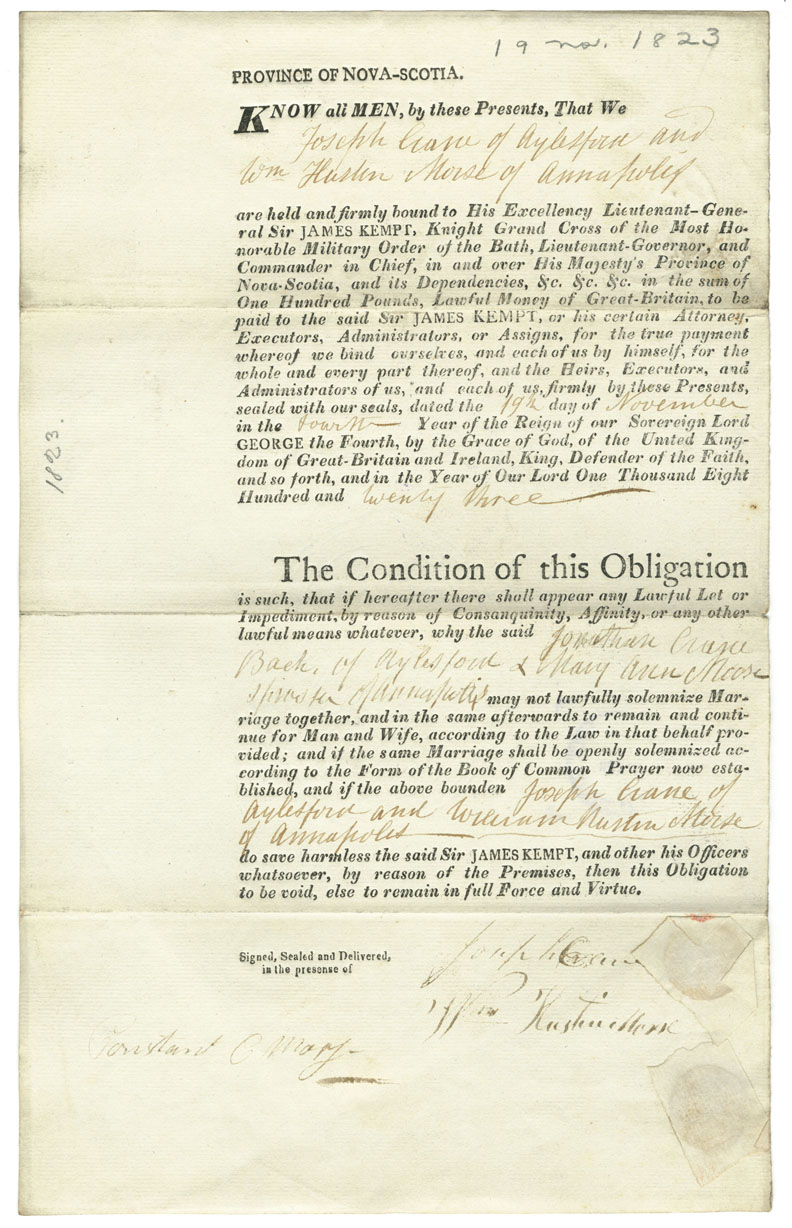 19 nov. 1823
PROVINCE OF NOVA-SCOTIA.
KNOW all MEN, by these Presents, That We
Joseph Crane of Aylesford and
Wm Huston Morse of Annapolis
are held and firmly bound to His Excellency Lieutenant-Gene-
ral Sir JAMES KEMPT, Knight Grand Cross of the Most Ho-
norable Military Order of the Bath, Lieutenant-Governor, and
Commander in Chief, in and over His Majesty's Province of
Nova-Scotia, and its Dependencies, &c. &c. &c. in the sum of
One Hundred Pounds, Lawful Money of Great-Britain, to be
paid to the said Sir JAMES KEMPT, or his certain Attorney,
Executors, Administrators, or Assigns, for the true payment
whereof we bind ourselves, and each of us by himself, for the
whole and every part thereof, and the Heirs, Executors, and
Administrators of us, and each of us, firmly by these Presents,
sealed with our seals, dated the 19th day of November
in the fourth Year of the Reign of our Sovereign Lord
GEORGE the Fourth, by the Grace of God, of the United King-
dom of Great-Britain and Ireland, King, Defender of the Faith,
and so forth, and in the Year of Our Lord One Thousand Eight
Hundred and twenty three
1823.
The Condition of this Obligation
is such, that if hereafter there shall appear any Lawful Let or
Impediment, by reason of Consanquinity, Affinity, or any other
lawful means whatever, why the said Jonathan Crane
Bach. of Aylesford & Mary Ann Moore
spinster of Annapolis may not lawfully solemnize Mar-
riage together, and in the same afterwards to remain and conti-
nue for Man and Wife, according to the Law in that behalf pro-
vided; and if the same Marriage shall be openly solemnized ac-
cording to the Form of the Book of Common Prayer now esta-
blished, and if the above bounden Joseph Crane of
Aylesford and William Huston Morse
of Annapolis
do save harmless the said Sir JAMES KEMPT, and other his Officers
whatsoever, by reason of the Premises, then this Obligation
to be void, else to remain in full Force and Virtue.
Signed, Sealed and Delivered,
in the presence of
Joseph Crane
Wm Huston Morse